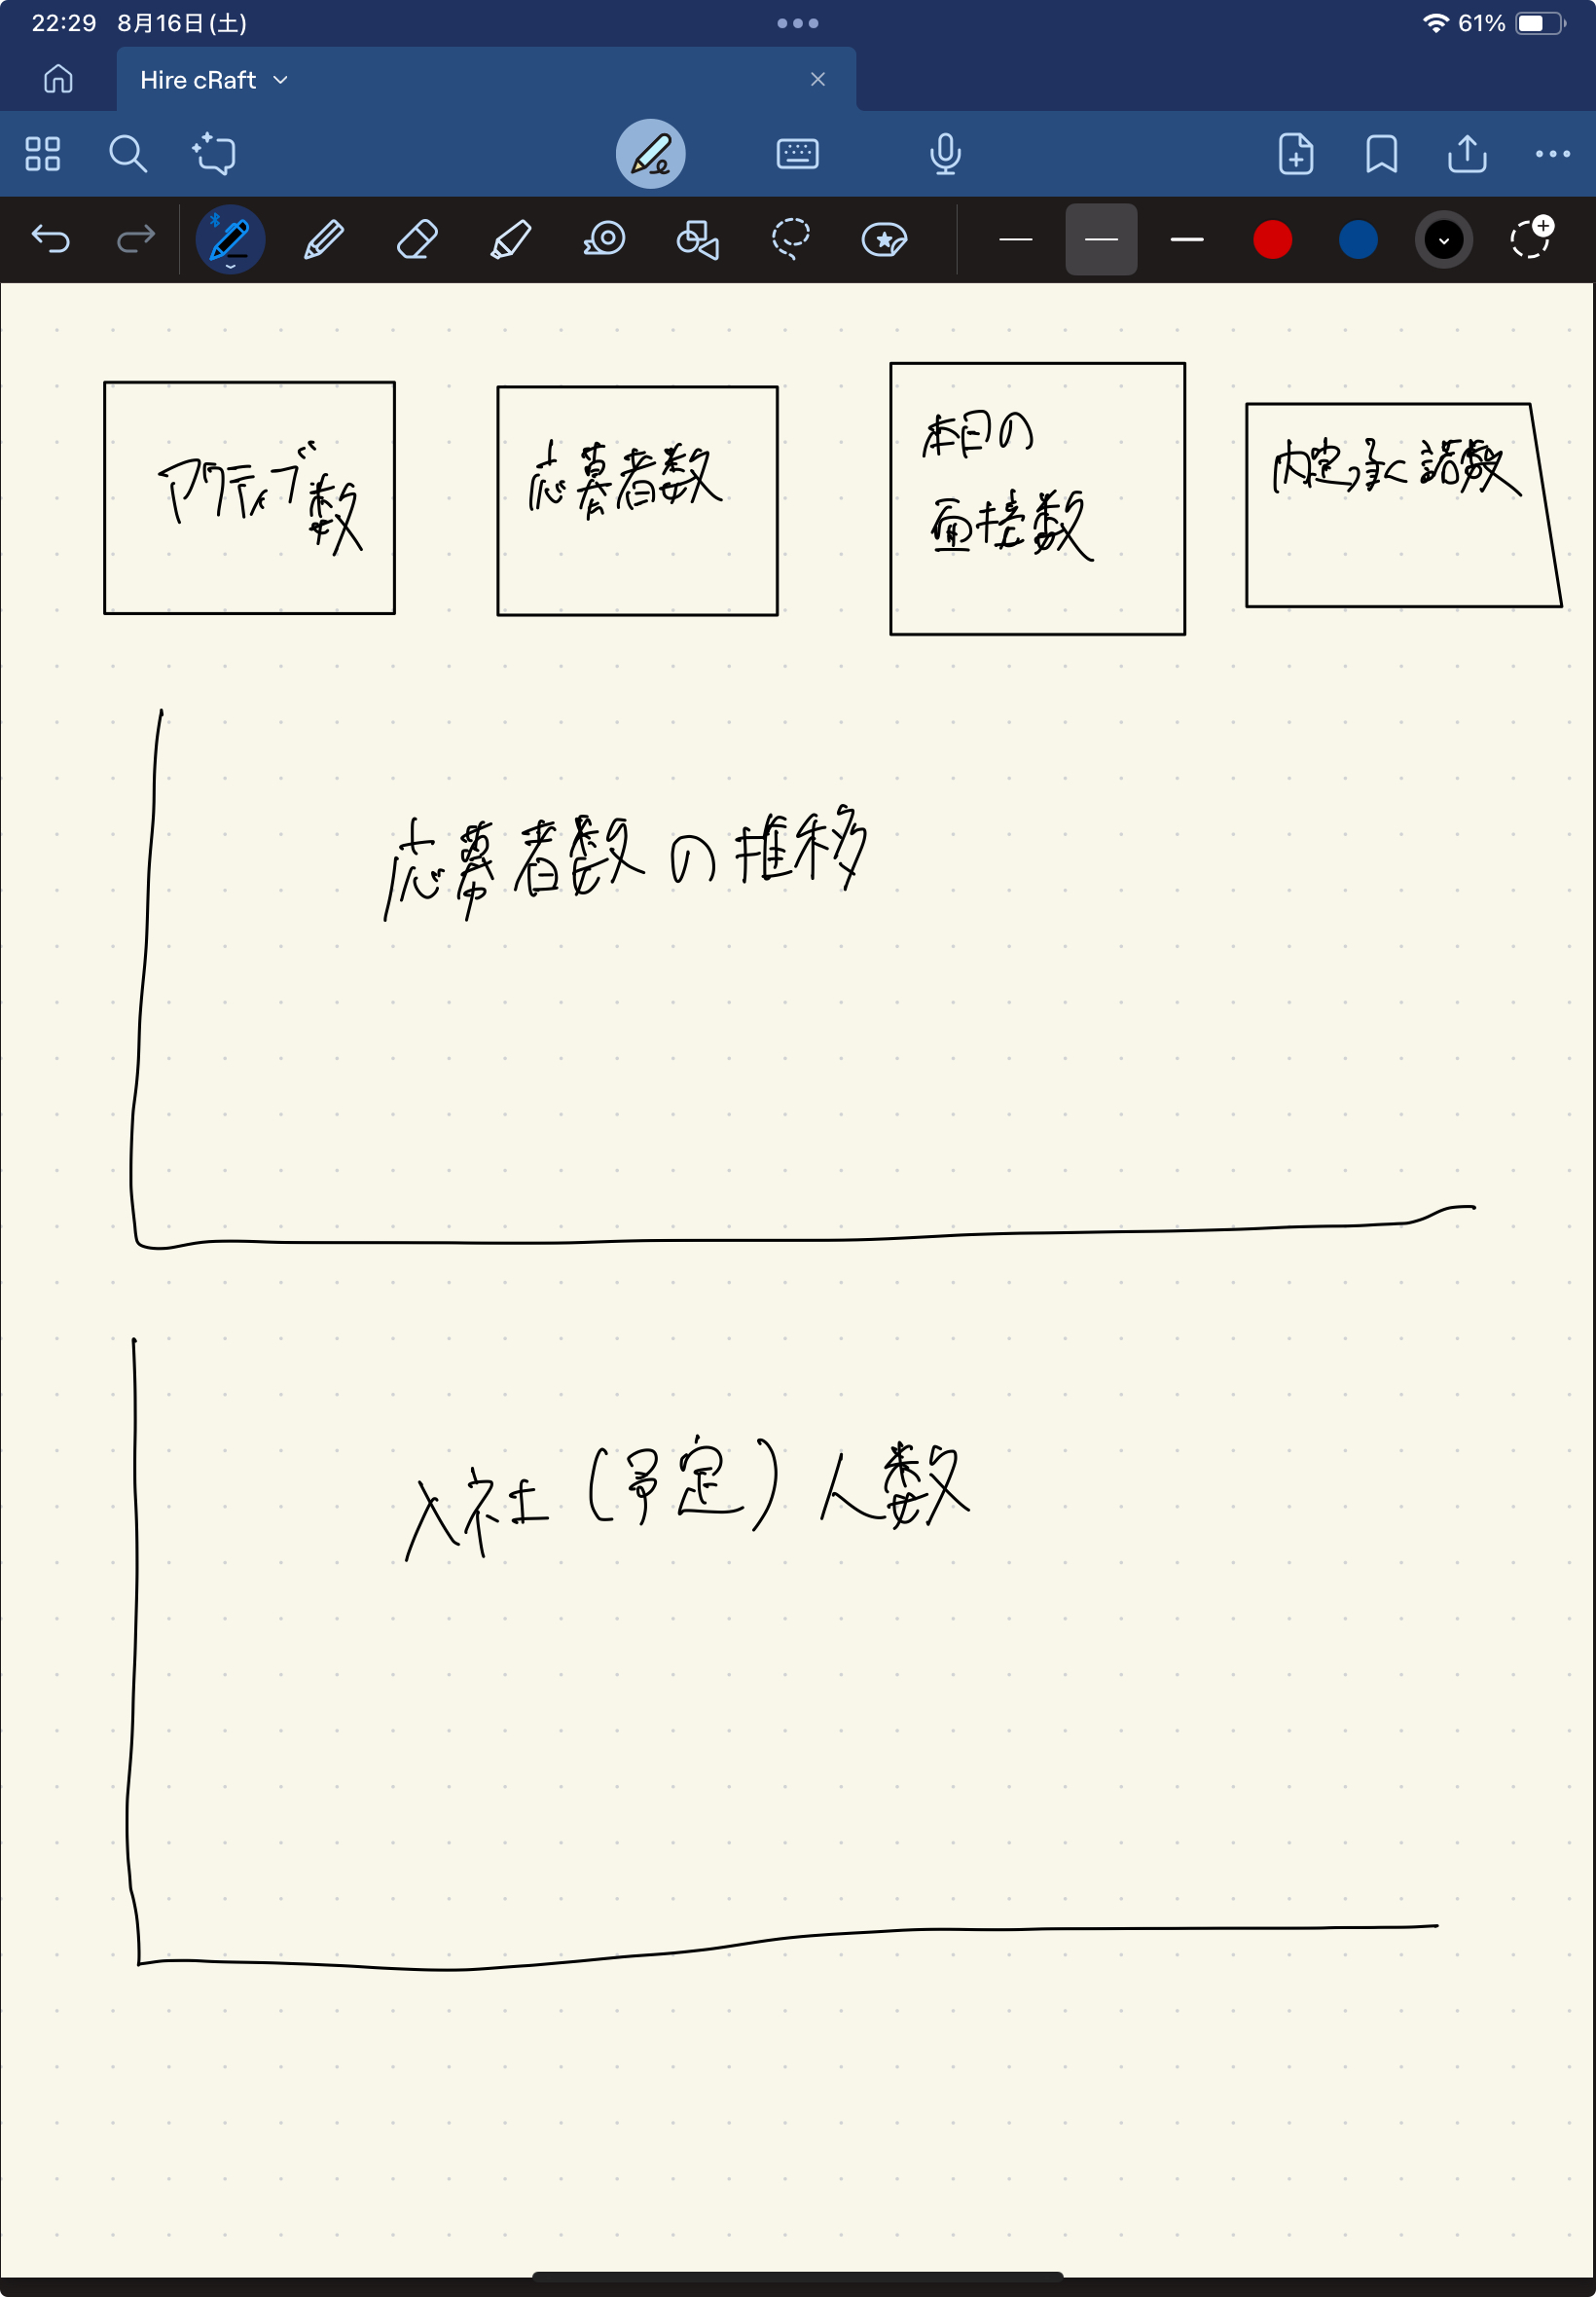 22:29 8月16日(土)
61%
Hire cRaft
アクティブ数
応募者数
本日の
面接数
内定承諾数
応募者数の推移
入社(予定)人数